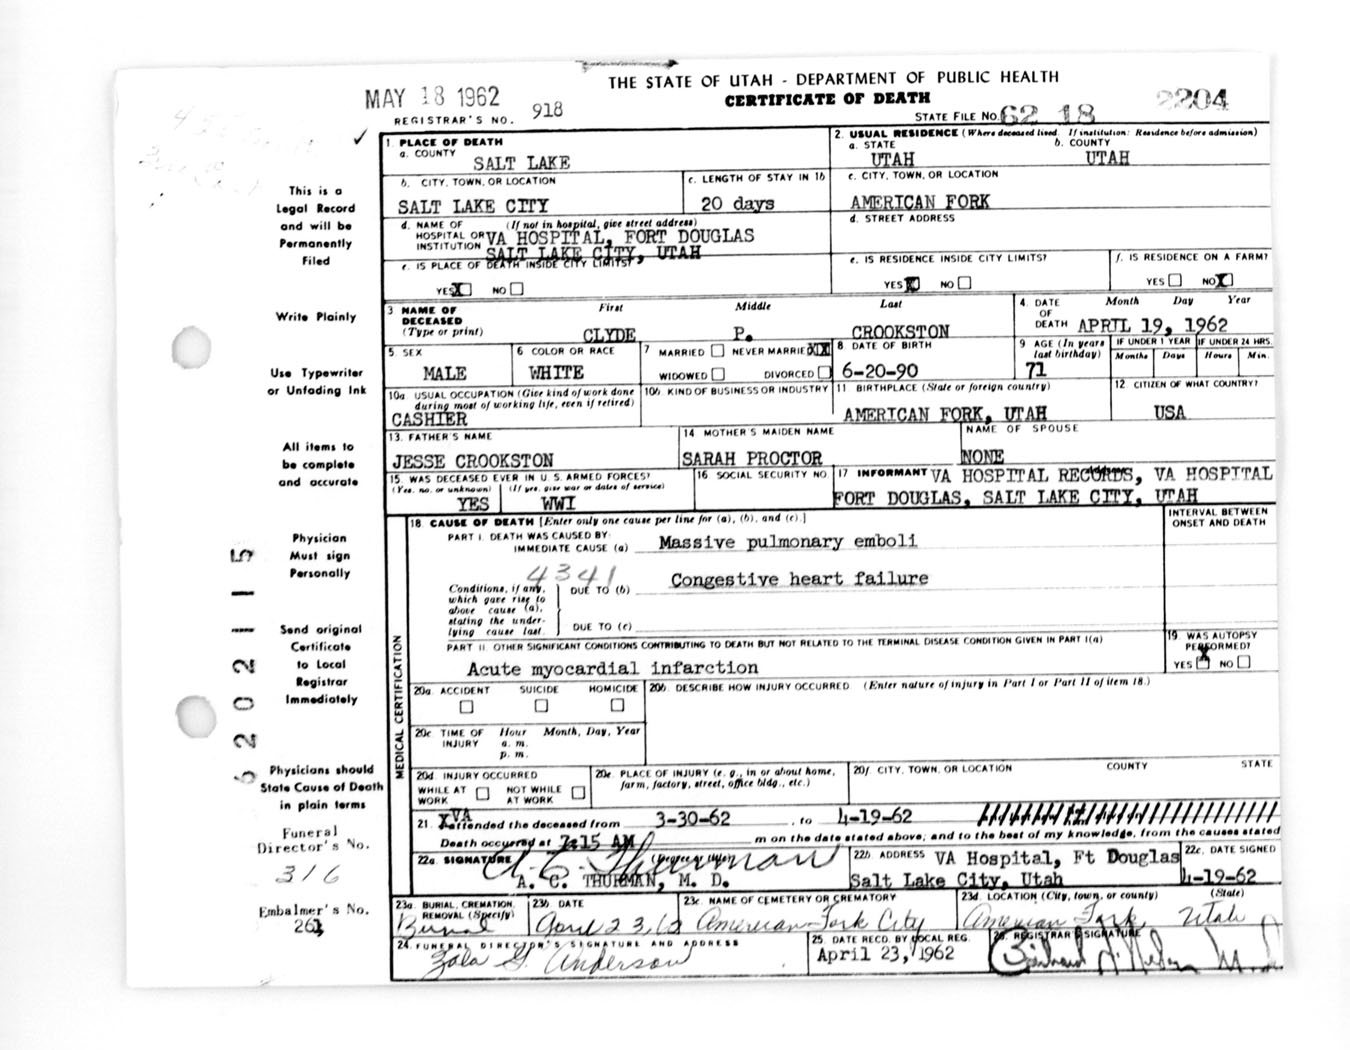 THE STATE OF UTAH - DEPARTMENT OF PUBLIC HEALTH
CERTIFICATE OF DEATH
MAY 18 1962
REGISTRAR'S NO. 918
STATE FILE No. 62 18 2204
This is a Legal Record and will be Permanently Filed
Write Plainly
Use Typewriter or Unfading Ink
All items to be complete and accurate
Physician Must sign Personally
Send original Certificate to Local Registrar Immediately
Physicians should State Cause of Death in plain terms
Funeral Director's No.
316
Embalmer's No.
MEDICAL CERTIFICATION
1. PLACE OF DEATH
a. COUNTY SALT LAKE
2. USUAL RESIDENCE (Where deceased lived. If institution: Residence before admission)
a. STATE UTAH b. COUNTY UTAH
b. CITY, TOWN, OR LOCATION SALT LAKE CITY
c. LENGTH OF STAY IN 1b 20 days
c. CITY, TOWN, OR LOCATION AMERICAN FORK
d. NAME OF HOSPITAL OR INSTITUTION (If not in hospital, give street address) VA HOSPITAL, FORT DOUGLAS
SALT LAKE CITY, UTAH
d. STREET ADDRESS
e. IS PLACE OF DEATH INSIDE CITY LIMITS?
YES X NO
e. IS RESIDENCE INSIDE CITY LIMITS?
YES X NO
f. IS RESIDENCE ON A FARM?
YES NO X
3 NAME OF DECEASED (Type or print)
First Middle Last
CLYDE P. CROOKSTON
4. DATE OF DEATH Month Day Year
APRIL 19, 1962
5 SEX MALE
6 COLOR OR RACE WHITE
7 MARRIED NEVER MARRIED XX
WIDOWED DIVORCED
8 DATE OF BIRTH 6-20-90
9 AGE (In years last birthday) 71
IF UNDER 1 YEAR Months Days
IF UNDER 24 HRS. Hours Min.
10a. USUAL OCCUPATION (Give kind of work done during most of working life, even if retired)
CASHIER
10b. KIND OF BUSINESS OR INDUSTRY
11 BIRTHPLACE (State or foreign country)
AMERICAN FORK, UTAH
12. CITIZEN OF WHAT COUNTRY?
USA
13. FATHER'S NAME
JESSE CROOKSTON
14 MOTHER'S MAIDEN NAME
SARAH PROCTOR
NAME OF SPOUSE
NONE
15. WAS DECEASED EVER IN U. S. ARMED FORCES?
(Yes, no, or unknown) (If yes, give war or dates of service)
YES WWI
16 SOCIAL SECURITY NO.
17 INFORMANT VA HOSPITAL RECORDS, VA HOSPITAL
FORT DOUGLAS, SALT LAKE CITY, UTAH
18. CAUSE OF DEATH [Enter only one cause per line for (a), (b), and (c).]
INTERVAL BETWEEN ONSET AND DEATH
PART I. DEATH WAS CAUSED BY:
IMMEDIATE CAUSE (a) Massive pulmonary emboli
4341
Conditions, if any, which gave rise to above cause (a), stating the underlying cause last.
DUE TO (b) Congestive heart failure
DUE TO (c)
PART II. OTHER SIGNIFICANT CONDITIONS CONTRIBUTING TO DEATH BUT NOT RELATED TO THE TERMINAL DISEASE CONDITION GIVEN IN PART I(a)
Acute myocardial infarction
19 WAS AUTOPSY PERFORMED?
YES X NO
20a. ACCIDENT SUICIDE HOMICIDE
20b. DESCRIBE HOW INJURY OCCURRED (Enter nature of injury in Part I or Part II of item 18.)
20c TIME OF INJURY Hour a. m. p. m. Month, Day, Year
20d. INJURY OCCURRED
WHILE AT WORK NOT WHILE AT WORK
20e. PLACE OF INJURY (e. g., in or about home, farm, factory, street, office bldg., etc.)
20f. CITY, TOWN, OR LOCATION COUNTY STATE
21. VA attended the deceased from 3-30-62, to 4-19-62
Death occurred at 7:15 AM m on the date stated above; and to the best of my knowledge, from the causes stated
22a. SIGNATURE A. C. Thurman
A. C. THURMAN, M. D.
22b. ADDRESS VA Hospital, Ft Douglas
Salt Lake City, Utah
22c. DATE SIGNED
4-19-62
23a. BURIAL, CREMATION, REMOVAL (Specify)
Burial
23b. DATE
April 23, 62
23c NAME OF CEMETERY OR CREMATORY
American Fork City
23d. LOCATION (City, town, or county) (State)
American Fork Utah
24. FUNERAL DIRECTOR'S SIGNATURE AND ADDRESS
G. Anderson
25. DATE RECD. BY LOCAL REG.
April 23, 1962
26. REGISTRAR'S SIGNATURE